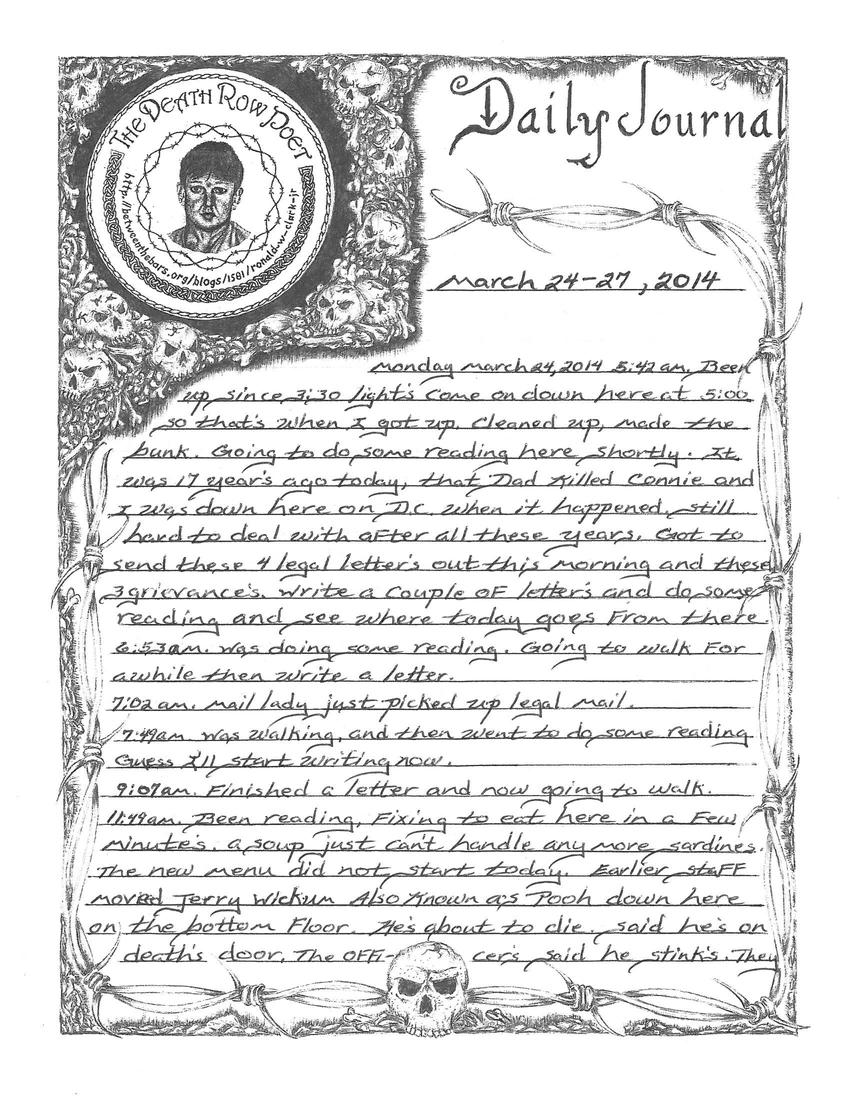 THE DEATH ROW POET
http://betweenthebars.org/blogs/1581/ronald-w-clark-jr
Daily Journal
March 24-27, 2014
Monday March 24, 2014 5:42 am. Been
up since 3:30 light's come on down here at 5:00
so that's when I got up. Cleaned up, made the
bunk. Going to do some reading here shortly. It
was 17 year's ago today, that Dad Killed Connie and
I was down here on D.C. when it happened, still
hard to deal with after all these years. Got to
send these 4 legal letter's out this morning and these
3 grievance's. Write a couple of letter's and do some
reading and see where today goes from there.
6:53am. was doing some reading. Going to walk for
awhile then write a letter.
7:02 am. Mail lady just picked up legal mail.
7:49am. was walking, and then went to do some reading
Guess I'll start writing now.
9:07am. Finished a letter and now going to walk.
11:49am. Been reading, fixing to eat here in a few
minute's. a soup just can't handle any more sardines.
The new menu did not start today. Earlier staff
moved Jerry Wickum Also Known as Pooh down here
on the bottom floor. He's about to die. said he's on
death's door. The offi- cer's said he stink's. They